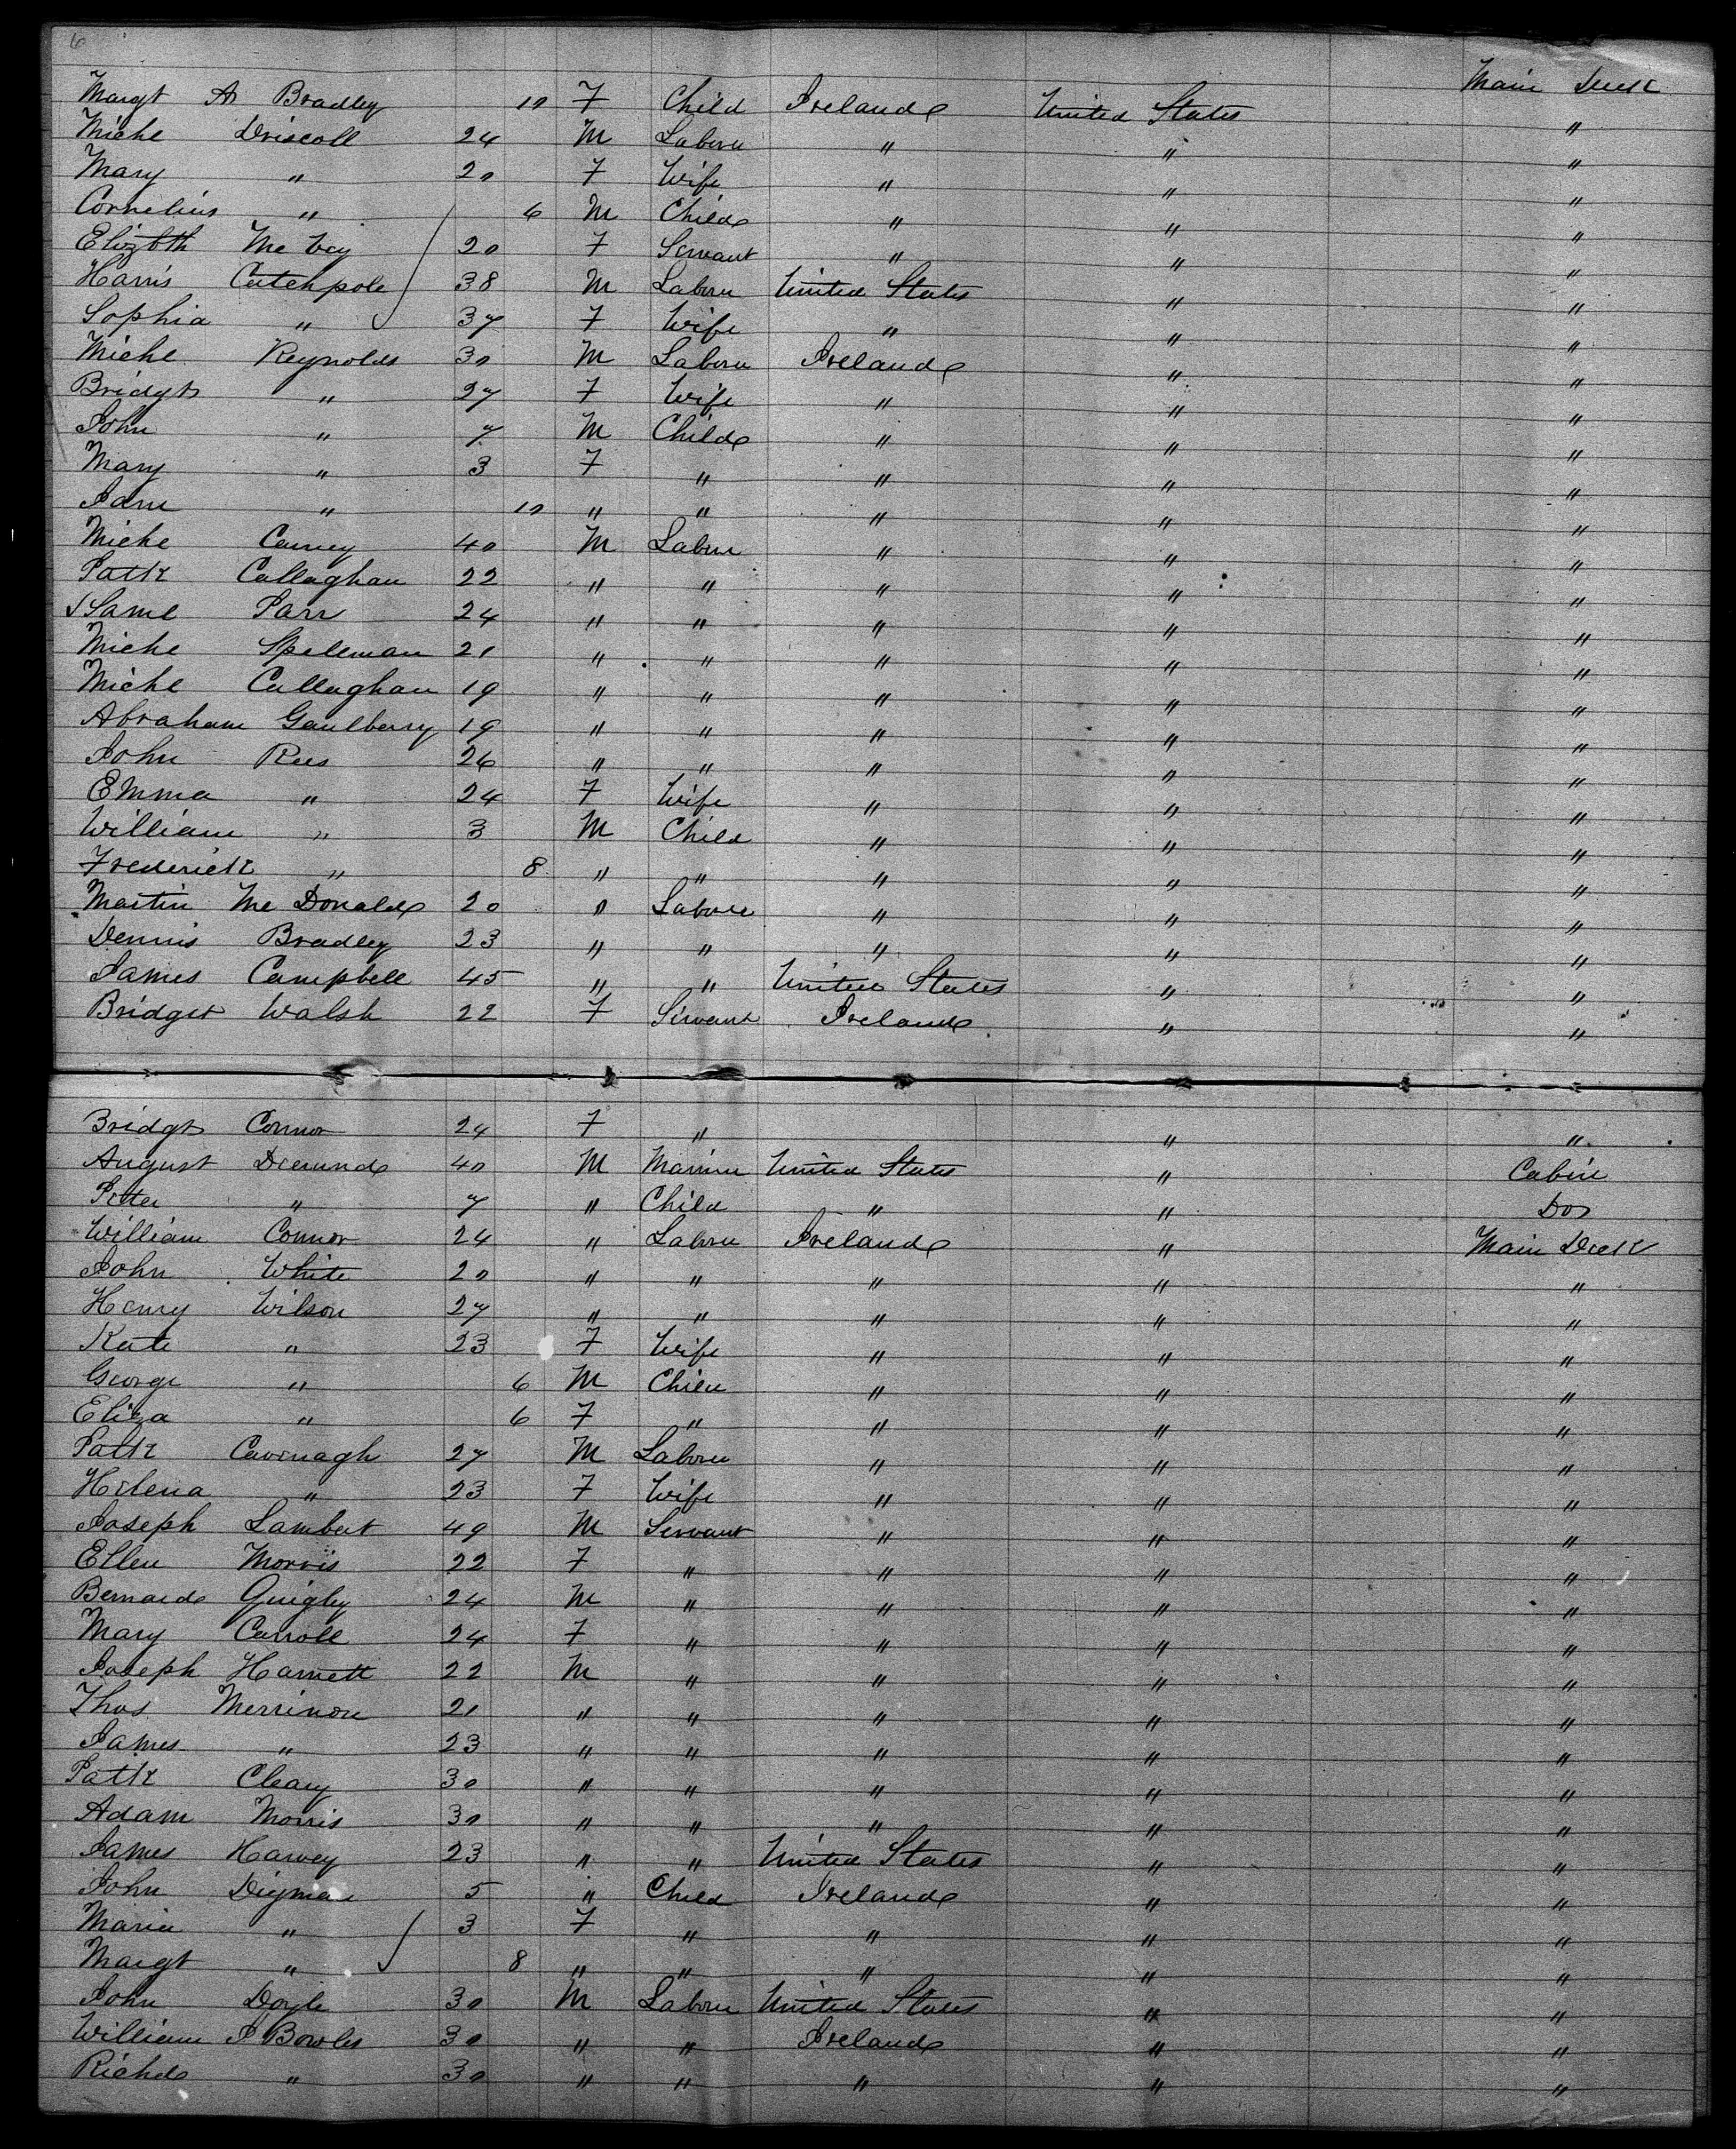 6
Main Deck
Margt A Bradley 10 F Child Ireland United States "
Michl Driscoll 24 M Labourer " " "
Mary " 20 F Wife " " "
Cornelius " 6 M Child " " "
Elizbth Mc 20 F Servant " " "
Harris Catchpole 38 M Labourer United States " "
Sophia " 37 F Wife " " "
Michl Reynolds 30 M Labourer Ireland " "
Bridgt " 27 F Wife " " "
John " 7 M Child " " "
Mary " 3 F " " " "
Jane " 10 " " " " "
Michl 40 M Labour " " "
Patk Callaghan 22 " " " " "
Saml Parr 24 " " " " "
Michl Spelman 21 " " " " "
Michl Callaghan 19 " " " " "
Abraham Gaulberry 19 " " " " "
John Rees 26 " " " " "
Emma " 24 F Wife " " "
William " 3 M Child " " "
Frederick " 8 " " " " "
Martin Mc Donald 20 " Labour " " "
Dennis Bradley 23 " " " " "
James Campbell 45 " " United States " "
Bridget Walsh 22 F Servant Ireland " "
Bridgt Connor 24 F " " "
August 40 M United States " Cabin
Peter " 7 " Child " " Do
William Connor 24 " Labour Ireland " Main Deck
John White 20 " " " " "
Henry Wilson 27 " " " " "
Kate " 23 F Wife " " "
George " 6 M Child " " "
Eliza " 6 F " " " "
Patk Cavenagh 27 M Labour " " "
Helena " 23 F Wife " " "
Joseph Lambert 49 M Servant " " "
Ellen Morris 22 F " " " "
Bernard Quigley 24 M " " " "
Mary Carroll 24 F " " " "
Joseph Harnett 22 M " " " "
Thos Merrinon 21 " " " " "
James " 23 " " " " "
Patk Cleary 30 " " " " "
Adam Morris 30 " " " " "
James Harvey 23 " " United States " "
John 5 " Child Ireland " "
Maria " 3 F " " " "
Margt " 8 " " " " "
John Doyle 30 M Labour United States " "
William J Bowles 30 " " Ireland " "
Richd " 30 " " " " "